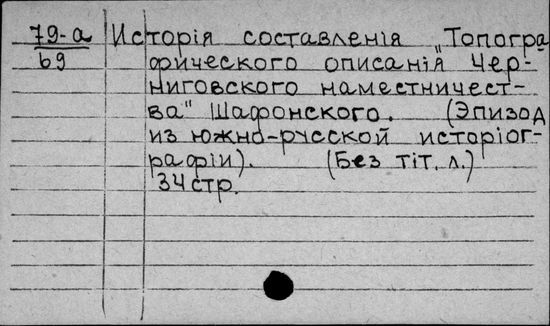 79-а История составленія „Топогра
69 фического описанія Чер-
ниговского наместничест-
ва" Шафонского. (Эпизод
из южно-русской исторіог-
рафіи). (Без тіт. л.)
34 стр.